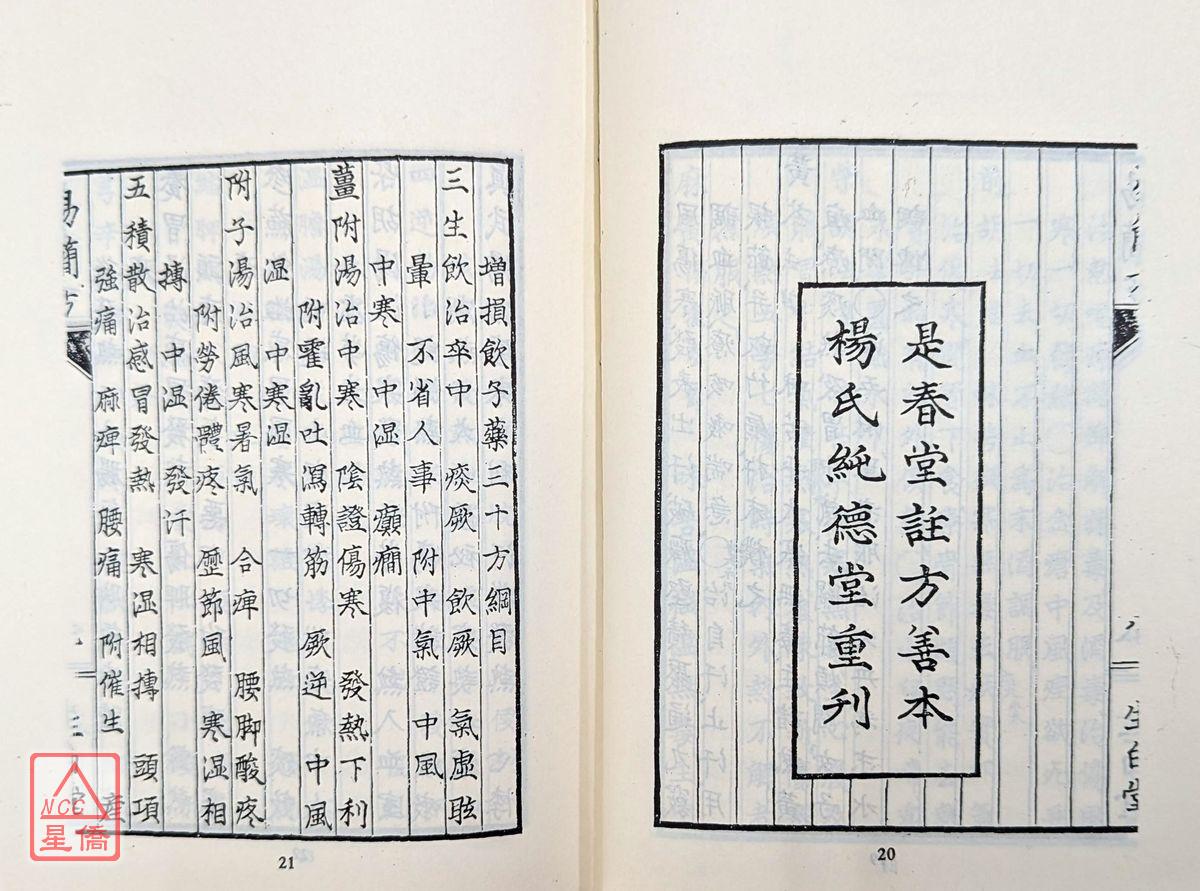 是春堂註方善本
楊氏純德堂重刊
生白堂
20
增損飲子藥三十方綱目
三生飲治卒中 痰厥飲厥 氣虛眩
暈 不省人事 附中氣 中風
中寒 中湿 癲癇
薑附湯治中寒 陰證傷寒 發熱下利
附霍亂吐瀉轉筋 厥逆 中風
湿 中寒湿
附子湯治風寒暑氣 合痺 腰脚酸疼
附勞倦體疼 歷節風 寒湿相
摶 中湿發汗
五積散治感冒發熱 寒湿相摶 頭項
強痛 麻痺 腰痛 附催生 産
易簡方
21
NCC
星僑